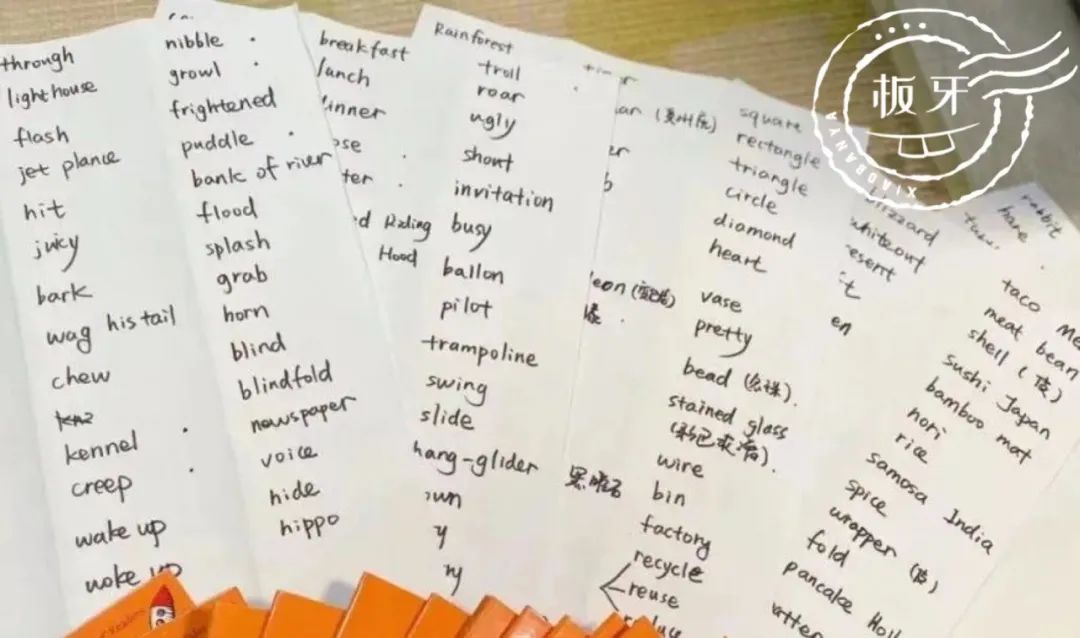 through
light house
flash
jet plance
hit
juicy
bark
wag his tail
chew
kennel
creep
wake up
woke up
nibble
growl
frightened
puddle
bank of river
flood
splash
grab
horn
blind
blindfold
newspaper
voice
hide
hippo
breakfast
lunch
dinner
Riding
Hood
Rainforest
troll
roar
ugly
shout
invitation
busy
ballon
pilot
trampoline
swing
slide
hang-glider
square
rectangle
triangle
circle
diamond
heart
vase
pretty
bead
stained glass
wire
bin
factory
recycle
reuse
whiteout
en
rabbit
hare
taco
meat bean
shell (皮)
sushi Japan
bamboo mat
nori
rice
samosa India
spice
wrapper (皮)
fold
pancake
板牙
XIAOBANYA